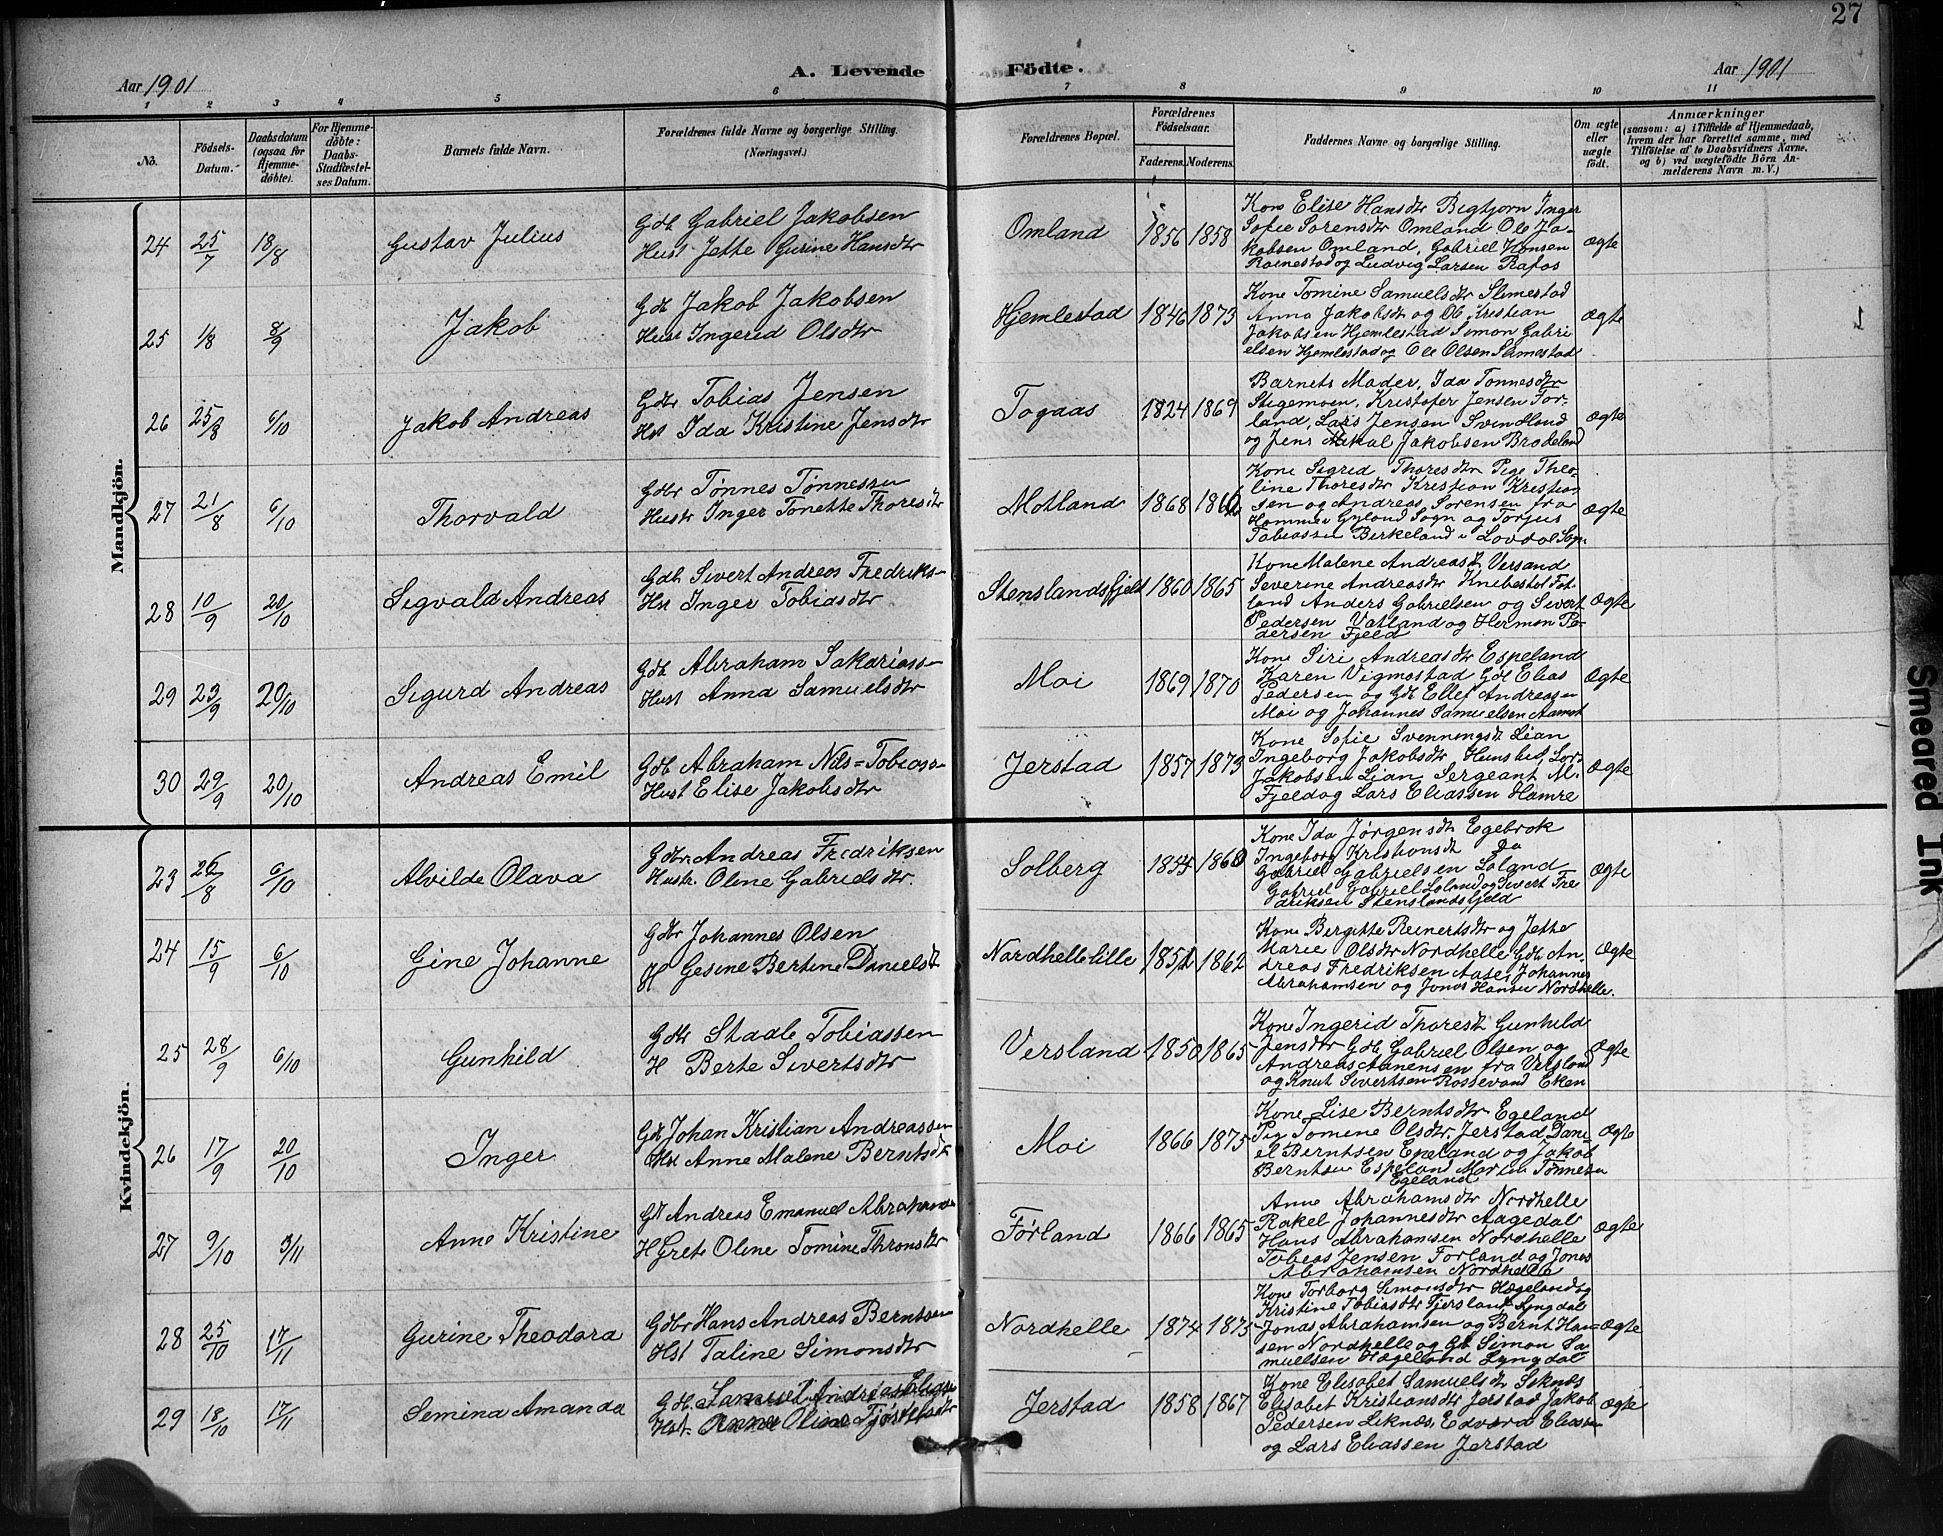 27
Aar 1901 A. Levende Födte. Aar 1901
1 2 3 4 5 6 7 8 9 10 11
No.
Födsels-Datum.
Daabsdatum (ogsaa for Hjemme-döbte).
For Hjemme-döbte: Daabs-Stadfæstel-ses Datum.
Barnets fulde Navn.
Forældrenes fulde Navne og borgerlige Stilling. (Næringsvei.)
Forældrenes Bopæl.
Forældrenes Födselsaar.
Faderens. Moderens.
Faddernes Navne og borgerlige Stilling.
Om ægte eller uægte födt.
Anmærkninger
(saasom: a) i Tilfælde af Hjemmedaab,
hvem der har forrettet samme, med
Tilföielse af to Daabsvidners Navne,
og b) ved uægtefödte Börn An-
melderens Navn m. V.)
Mandkjön.
24 25/7 18/8 Gustav Julius
Gdb Gabriel Jakobsen
Hust Jette Gurine Hansdtr
Omland 1856 1858
Kone Elise Hansdtr Bigbjorn Inger
Sofie Sorensdtr Omland Ole Ja-
kobsen Omland, Gabriel Hansen
og Ludvig Larsen Rafos
ægte
25 1/8 8/9 Jakob
Gdb Jakob Jakobsen
Hust Ingerid Olsdtr
Hjemlestad 1846 1873
Kone Tomine Samuelsdtr Slimestad
Anna Jakobsdtr og Ole Kristian
Jakobsen Hjemlestad Simon Gabri
elsen Hjemlestad og Ole Olsen Slimestad
ægte
26 25/8 6/10 Jakob Andreas
Gdbr Tobias Jensen
Hst Ida Kristine Jensdtr
Togaas 1824 1869
Barnets Moder, Ida Tonnesdtr
Stigemoen, Kristofer Jensen For-
land, Lars Jensen Svindland
og Jens Mikal Jakobsen Brodeland
ægte
27 21/8 6/10 Thorvald
Gdbr Tønnes Tønnessen
Hustr Inger Tonette Thoresdtr
Motland 1868
Kone Sigrid Thoresdtr Pige Theo-
line Thoresdtr Kristian Kristian-
sen og Andreas Sorensen fra
Homme i Gyland Sogn og Torjus
Tobiassen Birkeland i Sogn
ægte
28 10/9 20/10 Sigvald Andreas
Gdb Sivert Andreas Fredriks-
Hst Inger Tobiasdtr
Stenslandsfjeld 1860 1865
Kone Malene Andreasdt Versand
Severine Andreasdtr Knibestol Fet-
land Anders Gabrielsen og Sivert
Pedersen Vatland og Herman Pe-
dersen Fjeld
ægte
29 23/9 20/10 Sigurd Andreas
Gdb Abraham Sakariass-
Hust Anna Samuelsdtr
Moi 1869 1870
Kone Siri Andreasdtr Espeland
Karen Vigmostad Gdb Elias
Pedersen og Gdb Ellef Andreassen
Moi og Johannes Samuelsen Aamot
Ægte
30 29/9 20/10 Andreas Emil
Gdb Abraham Nils=Tobiass-
Hust Elise Jakobsdtr
Jerstad 1857 1873
Kone Sofie Svenningsdt Lian
Ingeborg Jakobsdtr Hunsbed, Lars
Jakobsen Lian Sergeant M.
Fjeld og Lars Eliassen Hamre
Ægte
Kvindekjön.
23 26/8 6/10 Alvilde Olava
Gdbr Andreas Fredriksen
Hustr. Oline Gabrielsdtr.
Solberg 1854 1860
Kone Ida Jørgensdt Egebrok
Ingeborg Kristiansdt Do
Gabriel Gabrielsen Loland
Gabriel Gabriels Loland og Sivert Fre
driksen Stenslandsfjeld
Ægte
24 15/9 6/10 Gine Johanne
Gdbr Johannes Olsen
H Gesine Bertine Danielsdt
Nordhelle lille 1862
Kone Bergitte Reinertsdtr og Jette
Marie Olsdtr Nordhelle Gdb An-
dreas Fredriksen Aase, Johannes
Abrahamsen og Jonas Hansen Nordhelle.
Ægte
25 28/9 6/10 Gunhild
Gdbr Staale Tobiassen
H Berte Sivertsdtr
Versland 1850 1865
Kone Ingerid Thoresdt Gunhild
Jensdtr Gdb Gabriel Olsen og
Andreas Aanensen fra Versland
og Knut Sivertsen Rossevand Eken
Ægte
26 17/9 20/10 Inger
Gdb Johan Kristian Andreassen
Hst Anne Malene Berntsdtr
Moi 1866 1875
Kone Lise Berntsdtr Egeland
Pig Tomine Olsdtr. Jerstad Dani-
el Berntsen Egeland og Jakob
Berntsen Espeland Martin Tønnesen
Egeland
Ægte
27 9/10 3/11 Anne Kristine
Gdb Andreas Emanuel Abrahamsen
H Grete Oline Tomine Thronsdtr
Førland 1866 1865
Anne Abrahamsdtr Nordhelle
Rakel Johannesdtr Aagedal
Hans Abrahamsen Nordhelle
Tobias Jensen Forland og Jonas
Abrahamsen Nordhelle
Ægte
28 25/10 17/11 Gurine Theodora
Gdbr Hans Andreas Berntsen
Hst Taline Simonsdtr
Nordhelle 1874 1875
Kone Torborg Simonsdtr Hægeland og
Kristine Tobiasdtr Fjersland Lyngdal
Jonas Abrahamsen og Bernt Han-
sen Nordhelle og Gb Simon Sa-
muelsen Hægeland Lyngdal
Ægte
29 18/10 17/11 Semina Amanda
Gdb Samuel Andreas Eliass
Hst. Anna Oline Tjøstelsdtr
Jerstad 1858 1867
Kone Elisabet Samuelsdtr Seknæs
Elisabet Kristiansdtr Jerstad Jakob
Pedersen Liknæs, Edvard Eliassen
og Lars Eliassen Jerstad
Ægte
Smeared Ink